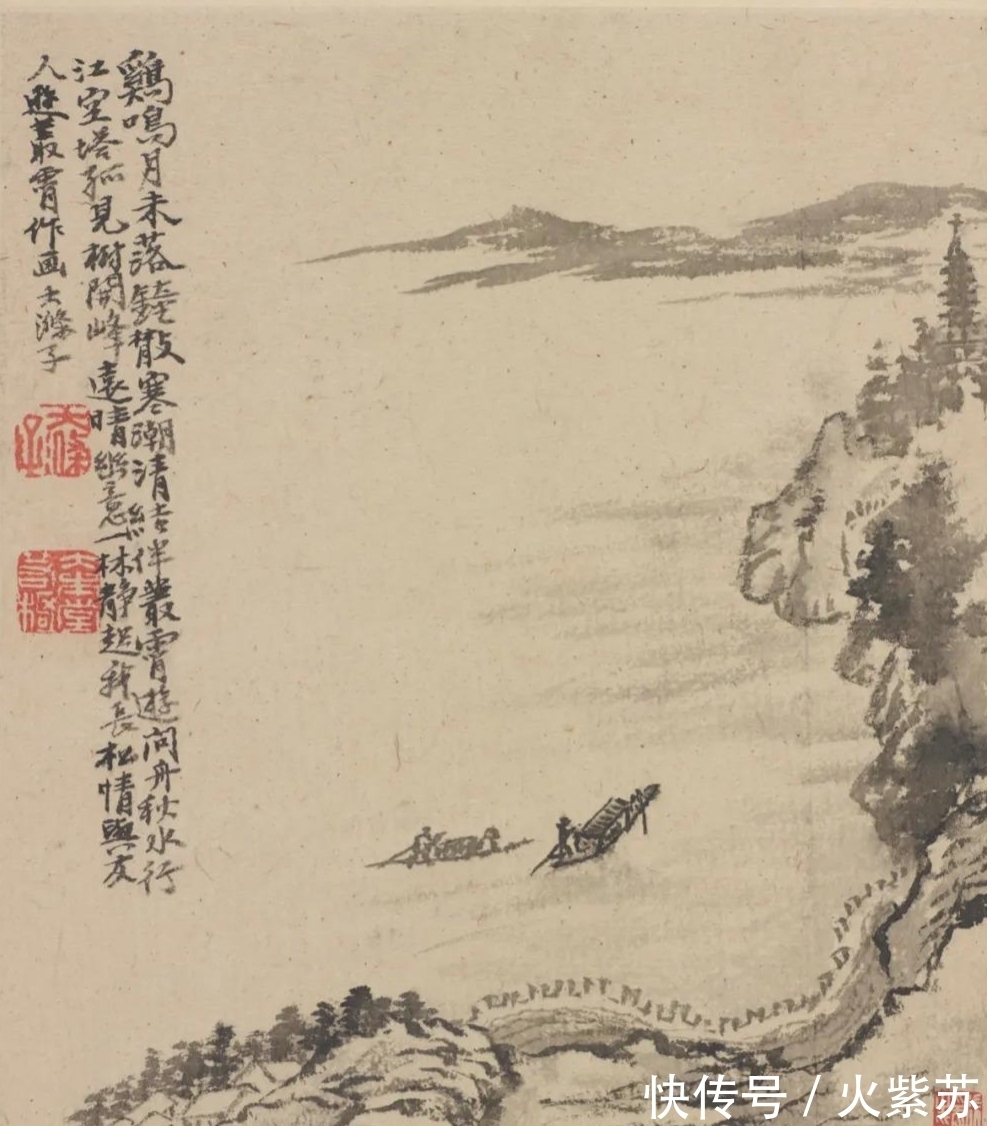 鷄鳴月未落鐘散寒潮清結伴叢霄遊問舟秋水行
江空塔孤見樹開峰遠晴幽意一林靜起我長松情與友
人遊叢霄作画大滌子
快传号 / 火紫苏